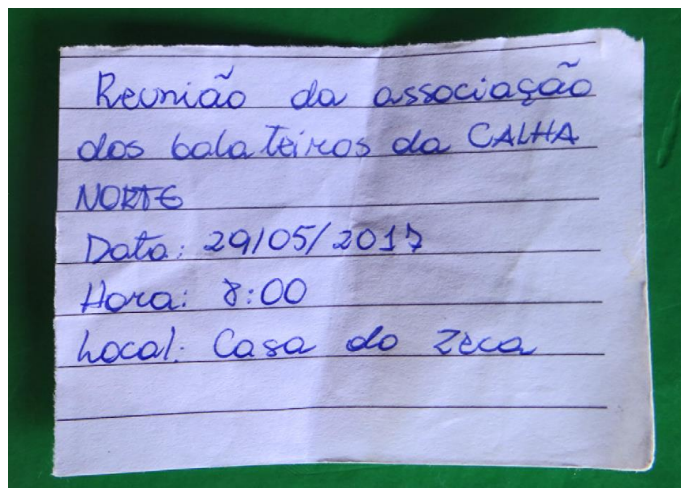 Reunião da associação
dos balateiros da CALHA
NORTE
Data: 29/05/2017
Hora: 8:00
Local: Casa do Zeca